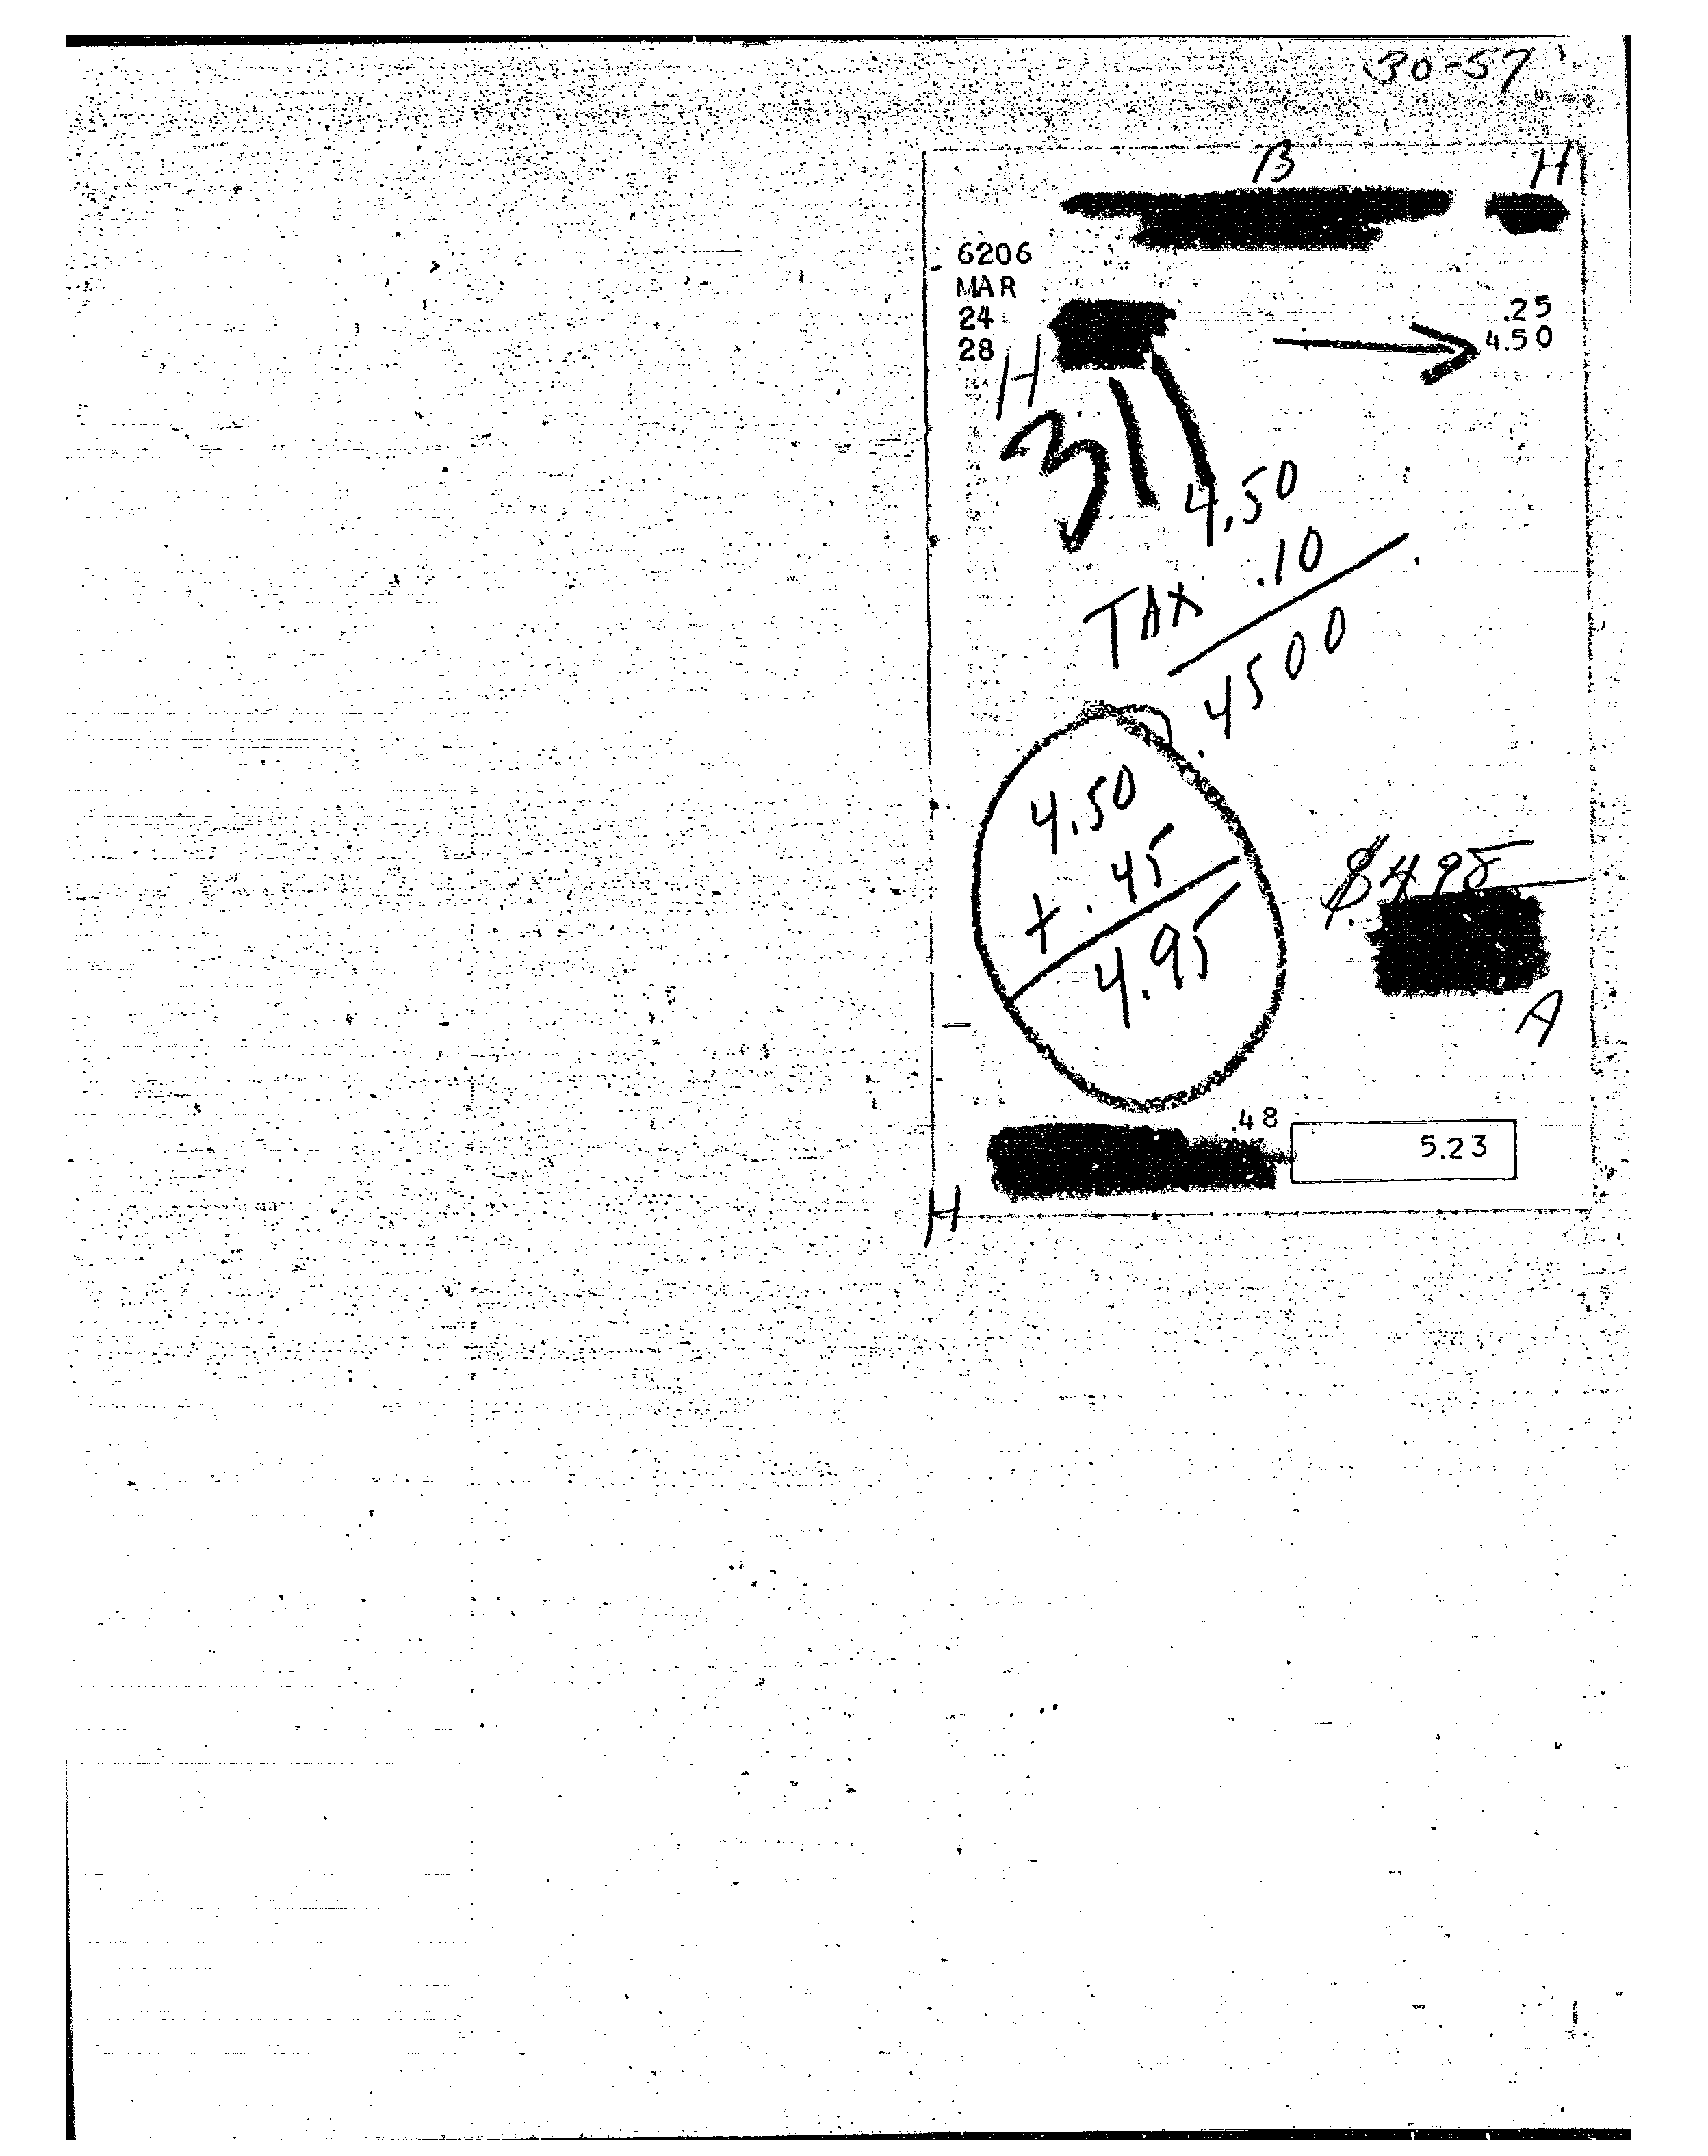 30-57
B H
6206
MAR
24 .25
28 4.50
H
311
4.50
TAX .10
.4500
4.50
+ .45
4.95
$4.95
A
.48
5.23
H